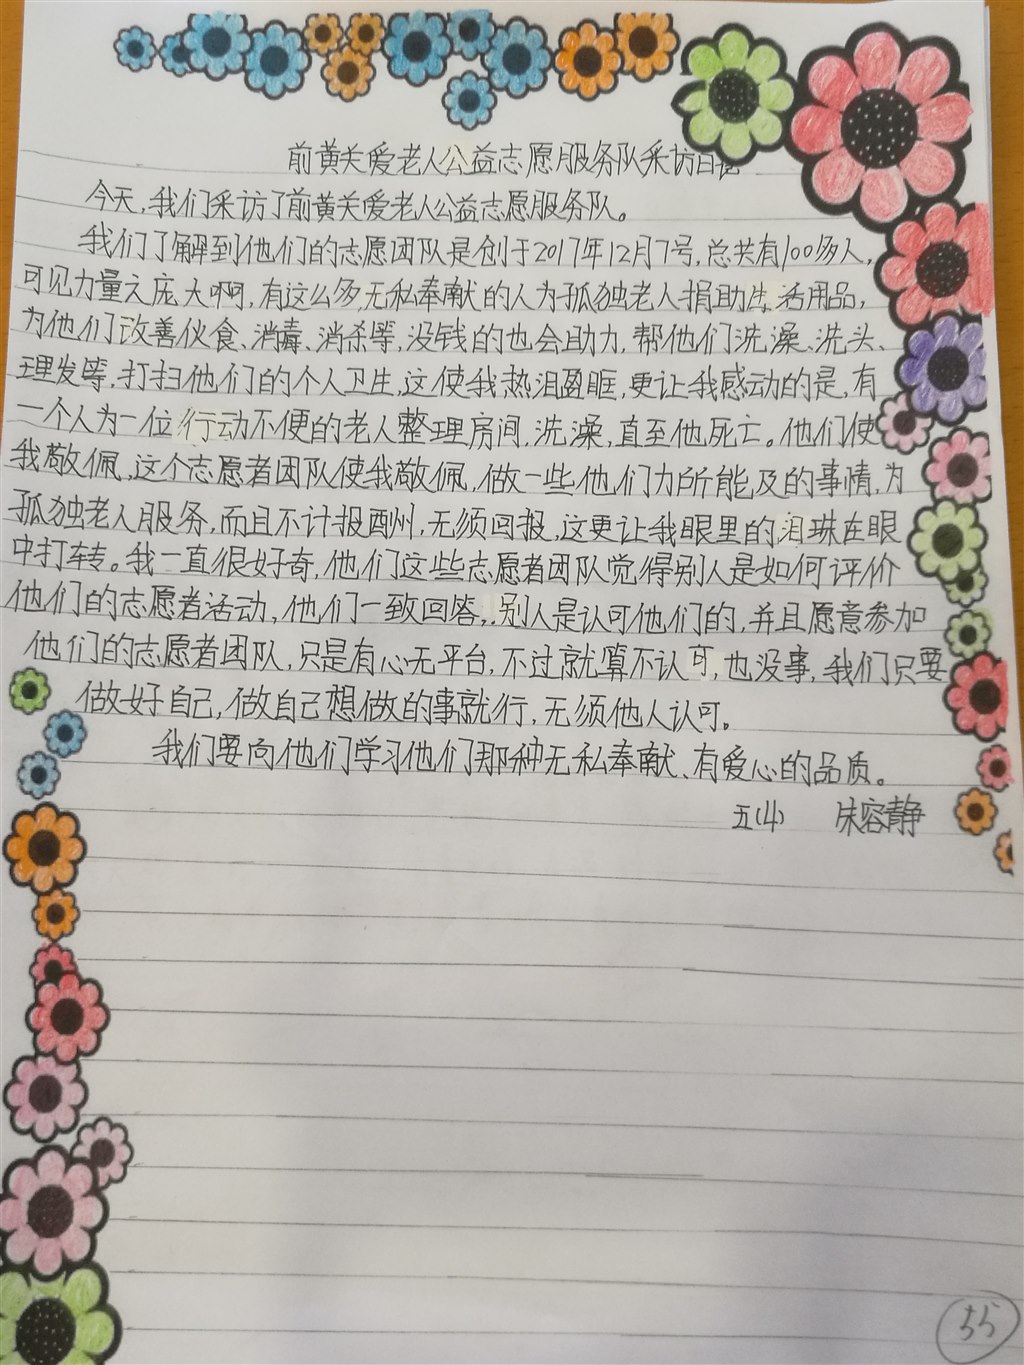 前黄关爱老人公益志愿服务队采访日记
今天,我们采访了前黄关爱老人公益志愿服务队。
我们了解到他们的志愿团队是创于2017年12月7号,总共有100多人,
可见力量之庞大啊,有这么多无私奉献的人为孤独老人捐助生活用品,
为他们改善伙食、消毒、消杀等,没钱的也会助力,帮他们洗澡、洗头、
理发等,打扫他们的个人卫生,这使我热泪盈眶,更让我感动的是,有
一个人为一位行动不便的老人整理房间,洗澡,直至他死亡。他们使
我敬佩,这个志愿者团队使我敬佩,做一些他们力所能及的事情,为
孤独老人服务,而且不计报酬,无须回报,这更让我眼里的泪珠在眼
中打转。我一直很好奇,他们这些志愿者团队觉得别人是如何评价
他们的志愿者活动,他们一致回答,别人是认可他们的,并且愿意参加
他们的志愿者团队,只是有心无平台,不过就算不认可,也没事,我们只要
做好自己,做自己想做的事就行,无须他人认可。
我们要向他们学习他们那种无私奉献、有爱心的品质。
五(4) 朱容静
55